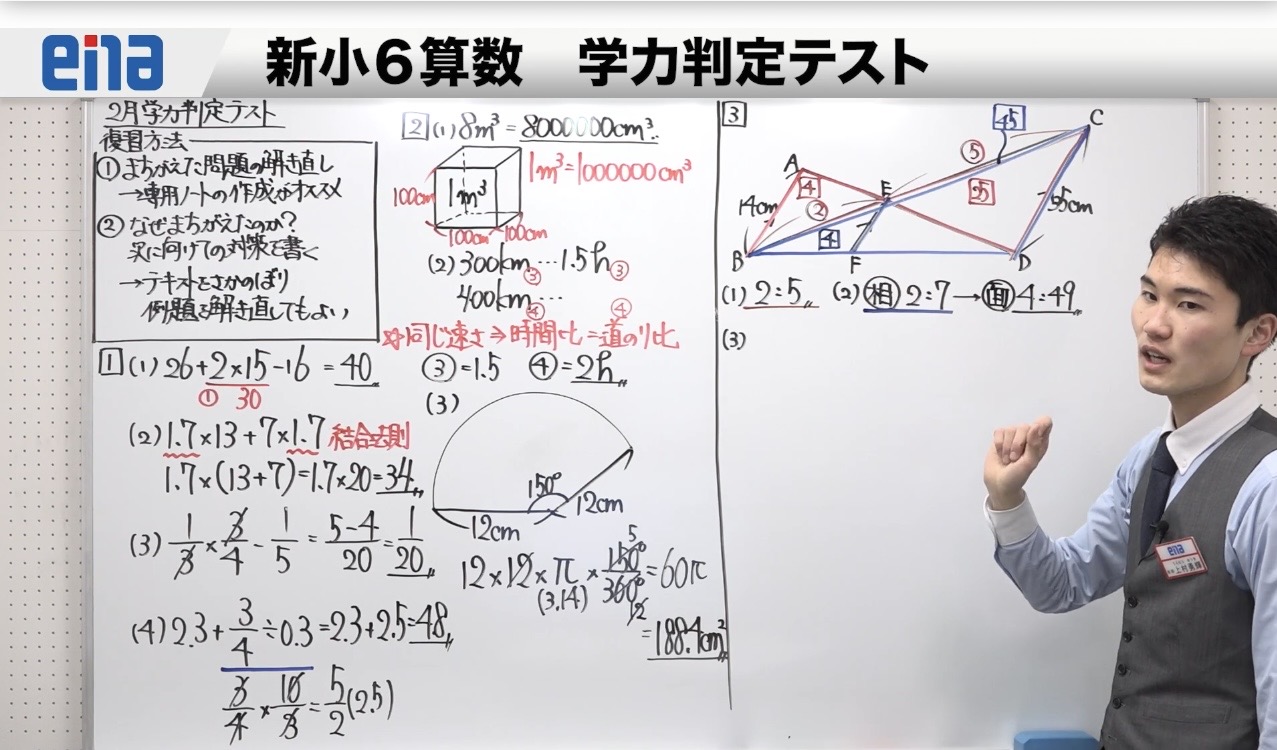 eina
新小6算数 学力判定テスト
2月学力判定テスト
復習方法
①まちがえた問題の解き直し
→専用ノートの作成がオススメ
②なぜまちがえたのか?
次に向けての対策を書く
→テキストをさかのぼり
例題を解き直してもよい
1 (1) 26+2×15-16 = 40
① 30
(2) 1.7×13+7×1.7 結合法則
1.7×(13+7)=1.7×20=34
(3) 1/3 × 3/4 - 1/5 = 5-4/20 = 1/20
(4) 2.3+3/4÷0.3=2.3+2.5=48
3/4 × 10/3 = 5/2 (2.5)
2 (1) 8m³ = 8000000cm³
1m³ 1m³=1000000cm³
100cm
100cm 100cm
(2) 300km…1.5h
③ ③
400km…
④ ④
☆同じ速さ⇒時間比=道のり比
③=1.5 ④=2h
(3)
150°
12cm 12cm
12×12×π×150°/360°=60π
5
(3.14)
12
=188.4cm²
3
45 C
A ⑤
4 E 25
14cm ② 35cm
4
B F D
(1) 2:5 (2) 相 2:7→面 4:49
(3)
eina
上村勇輝